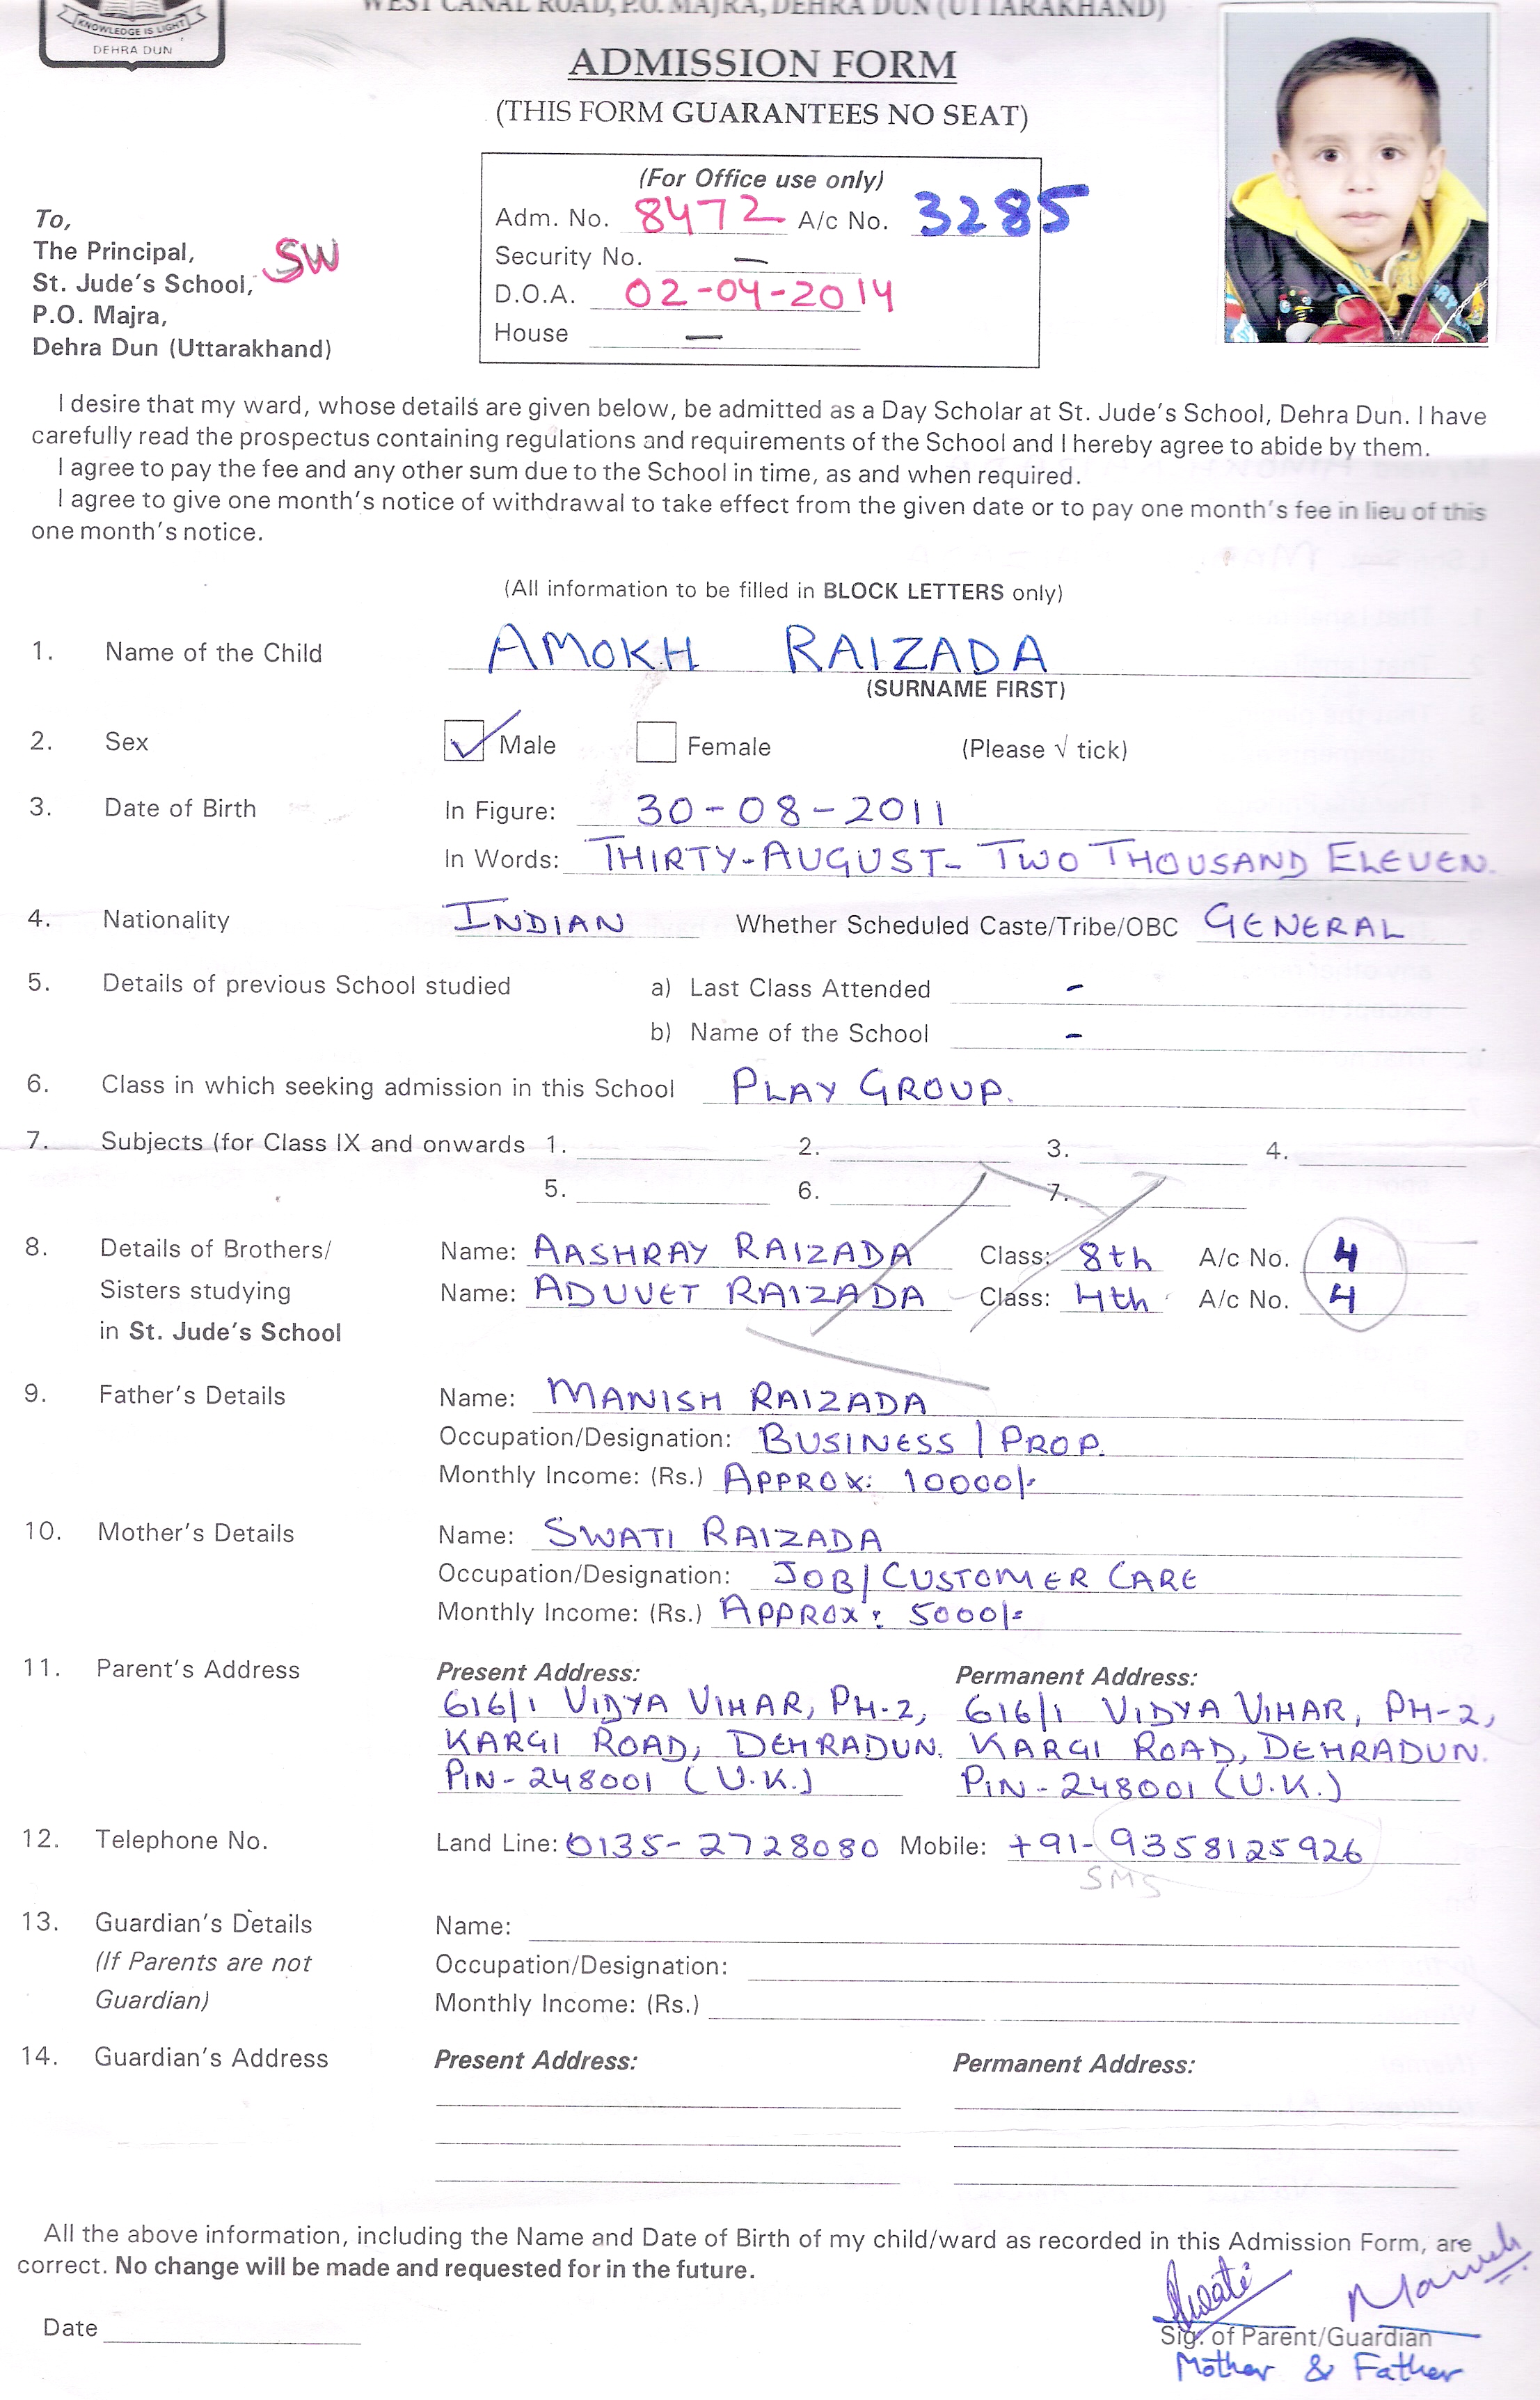 KNOWLEDGE IS LIGHT
DEHRA DUN
WEST CANAL ROAD, P.O. MAJRA, DEHRA DUN (UTTARAKHAND)
ADMISSION FORM
(THIS FORM GUARANTEES NO SEAT)
(For Office use only)
Adm. No. 8472 A/c No. 3285
Security No. —
D.O.A. 02-04-2014
House —
To,
The Principal,
St. Jude's School, SW
P.O. Majra,
Dehra Dun (Uttarakhand)
I desire that my ward, whose details are given below, be admitted as a Day Scholar at St. Jude's School, Dehra Dun. I have
carefully read the prospectus containing regulations and requirements of the School and I hereby agree to abide by them.
I agree to pay the fee and any other sum due to the School in time, as and when required.
I agree to give one month's notice of withdrawal to take effect from the given date or to pay one month's fee in lieu of this
one month's notice.
(All information to be filled in BLOCK LETTERS only)
1. Name of the Child AMOKH RAIZADA
(SURNAME FIRST)
2. Sex ✓ Male Female (Please √ tick)
3. Date of Birth In Figure: 30-08-2011
In Words: THIRTY-AUGUST- TWO THOUSAND ELEVEN.
4. Nationality INDIAN Whether Scheduled Caste/Tribe/OBC GENERAL
5. Details of previous School studied a) Last Class Attended -
b) Name of the School -
6. Class in which seeking admission in this School PLAY GROUP.
7. Subjects (for Class IX and onwards 1. 2. 3. 4.
5. 6. 7.
8. Details of Brothers/ Name: AASHRAY RAIZADA Class: 8th A/c No. 4
Sisters studying Name: ADUVET RAIZADA Class: 4th A/c No. 4
in St. Jude's School
9. Father's Details Name: MANISH RAIZADA
Occupation/Designation: BUSINESS | PROP.
Monthly Income: (Rs.) APPROX: 10000/-
10. Mother's Details Name: SWATI RAIZADA
Occupation/Designation: JOB | CUSTOMER CARE
Monthly Income: (Rs.) APPROX: 5000/-
11. Parent's Address Present Address: Permanent Address:
616/1 VIDYA VIHAR, PH-2, 616/1 VIDYA VIHAR, PH-2,
KARGI ROAD, DEHRADUN. KARGI ROAD, DEHRADUN.
PIN-248001 (U.K.) PIN-248001 (U.K.)
12. Telephone No. Land Line: 0135-2728080 Mobile: +91-9358125926
SMS
13. Guardian's Details Name:
(If Parents are not Occupation/Designation:
Guardian) Monthly Income: (Rs.)
14. Guardian's Address Present Address: Permanent Address:
All the above information, including the Name and Date of Birth of my child/ward as recorded in this Admission Form, are
correct. No change will be made and requested for in the future.
Swati Manish
Date Sig. of Parent/Guardian
Mother & Father